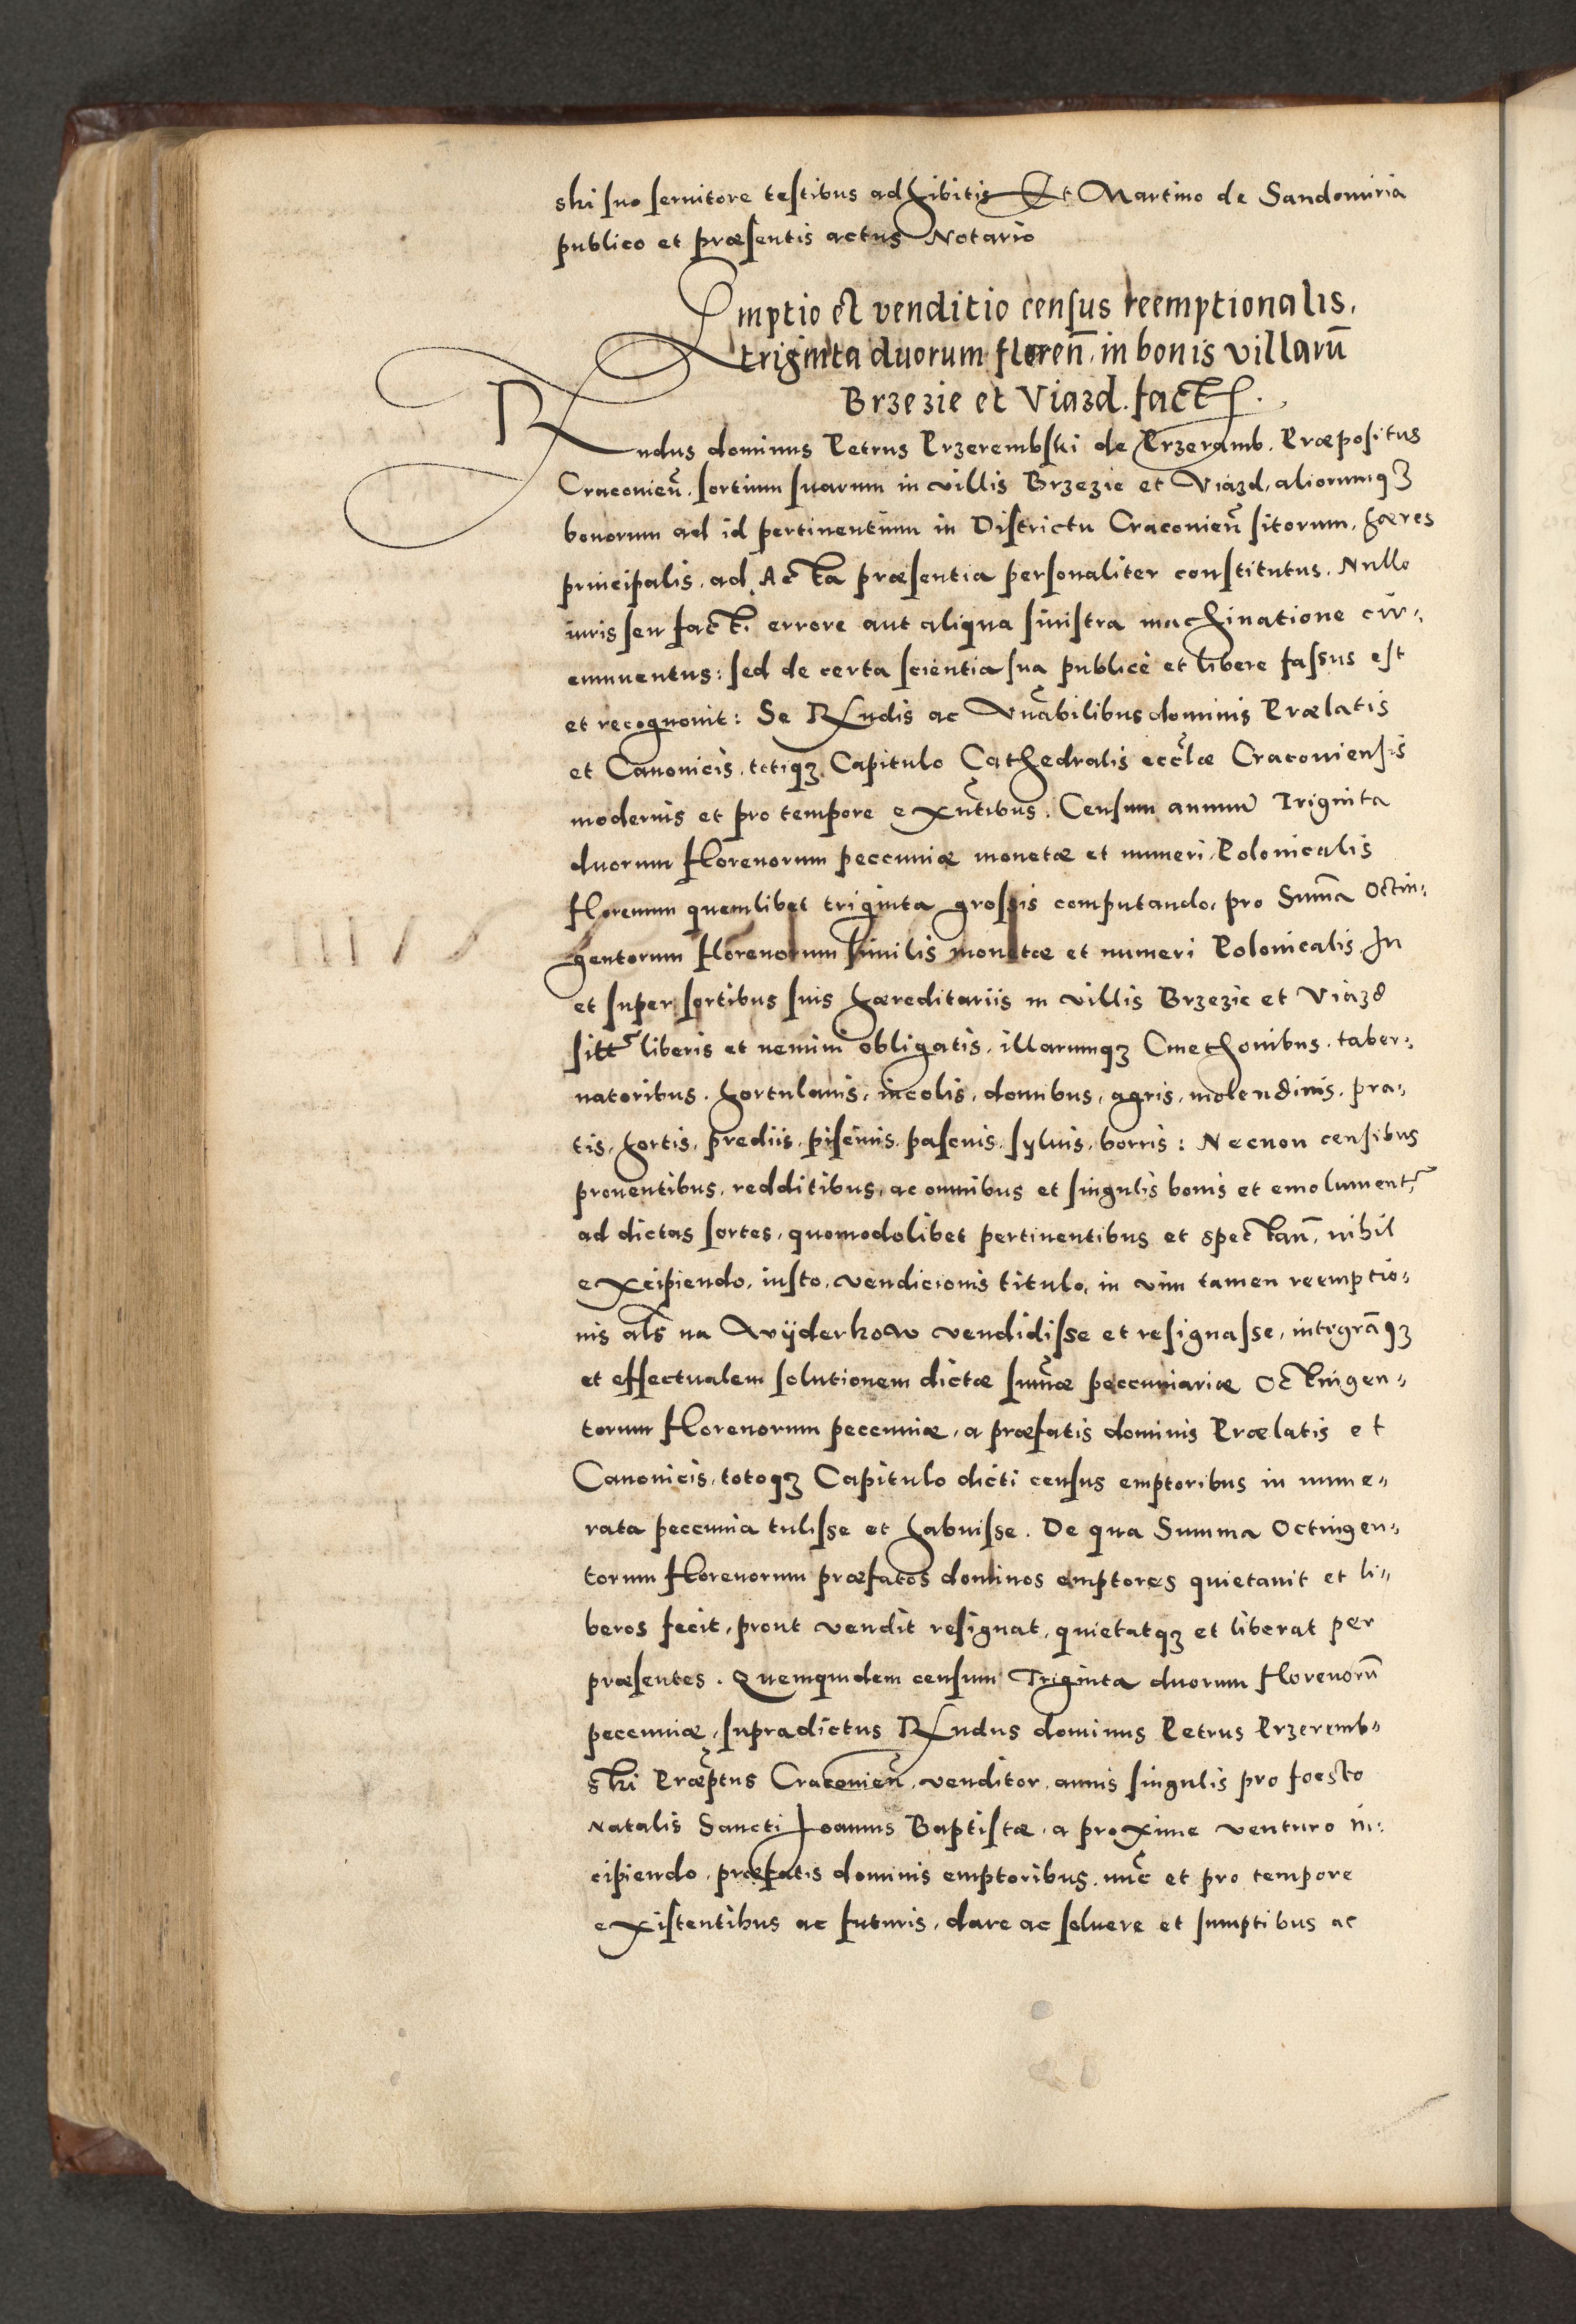 ski suo seruitore testibus adhibitis Et Martino de Sandomiria
publico et præsentis actus Notario
Emptio et venditio census reemptionalis,
triginta duorum floreñ. in bonis villarũ
Brzezie et Viazd. fact.
Rndus dominus Petrus Przerembski de Przeramb. Præpositus
Cracovieñ. sortium suarum in villis Brzezie et Viazd, aliorumqꝫ
bonorum ad id pertinentium in Districtu Cracovieñ sitorum, hæres
principalis, ad Acta præsentia personaliter constitutus. Nullo
iuris seu facti errore aut aliqua sinistra machinatione cir-
cumuentus: sed de certa scientia sua publicè et libere fassus est
et recognouit: Se Rndis ac Vnabilibus dominis Prælatis
et Canonicis, totiqꝫ Capitulo Cathedralis eccłæ Cracouiensis
modernis et pro tempore exñtibus. Censum annuũ Triginta
duorum florenorum peccuniæ monetæ et numeri Polonicalis
florenum quemlibet triginta grossis computando, pro Sum̃a Octin-
gentorum florenorum similis monetæ et numeri Polonicalis. In
et super sortibus suis hæreditariis in villis Brzezie et Viazd
sitt. liberis et nemini obligatis, illarumqꝫ Cmethonibus, taber-
natoribus, hortulanis, incolis, domibus, agris, molendinis, pra-
tis, hortis, prediis, piscinis, pascuis, syluis, borris: Necnon censibus
prouentibus, redditibus, ac omnibus et singulis bonis et emolument.
ad dictas sortes, quomodolibet pertinentibus et spectañ, nihil
excipiendo, iusto, vendicionis titulo, in vim tamen reemptio-
nis als na Wÿderkow vendidisse et resignasse, integrãqꝫ
et effectualem solutionem dictæ sum̃æ peccuniariæ Octingen-
torum florenorum peccuniæ, a præfatis dominis Prælatis et
Canonicis, totoqꝫ Capitulo dicti census emptoribus in nume-
rata peccunia tulisse et habuisse. De qua Summa Octingen-
torum florenorum præfatos dominos emptores quietauit et li-
beros fecit, prout vendit resignat, quietatqꝫ et liberat per
præsentes. Quemquidem censum Triginta duorum florenorũ
peccuniæ, supradictus Rndus dominus Petrus Przeremb-
ski Præptus Cracouieñ, venditor, annis singulis pro foesto
Natalis Sancti Joannis Baptistæ, a proxime venturo in-
cipiendo, præfatis dominis emptoribus, nũc et pro tempore
existentibus ac futuris, dare ac soluere et sumptibus ac